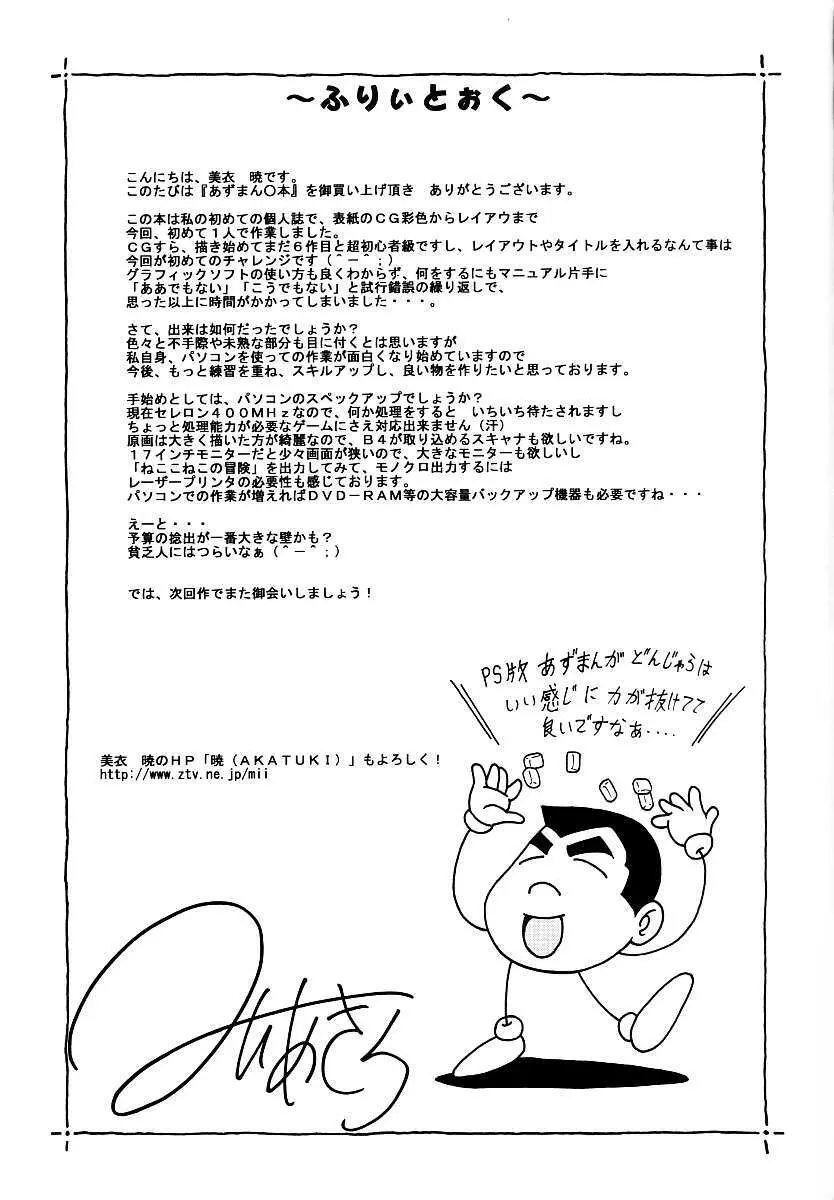 ～ふりぃとぉく～
こんにちは、美衣　暁です。
このたびは『あずまん○本』を御買い上げ頂き　ありがとうございます。
この本は私の初めての個人誌で、表紙のＣＧ彩色からレイアウまで
今回、初めて１人で作業しました。
ＣＧすら、描き始めてまだ６作目と超初心者級ですし、レイアウトやタイトルを入れるなんて事は
今回が初めてのチャレンジです（＾－＾；）
グラフィックソフトの使い方も良くわからず、何をするにもマニュアル片手に
「ああでもない」「こうでもない」と試行錯誤の繰り返しで、
思った以上に時間がかかってしまいました・・・。
さて、出来は如何だったでしょうか？
色々と不手際や未熟な部分も目に付くとは思いますが
私自身、パソコンを使っての作業が面白くなり始めていますので
今後、もっと練習を重ね、スキルアップし、良い物を作りたいと思っております。
手始めとしては、パソコンのスペックアップでしょうか？
現在セレロン４００ＭＨｚなので、何か処理をすると　いちいち待たされますし
ちょっと処理能力が必要なゲームにさえ対応出来ません（汗）
原画は大きく描いた方が綺麗なので、Ｂ４が取り込めるスキャナも欲しいですね。
１７インチモニターだと少々画面が狭いので、大きなモニターも欲しいし
「ねここねこの冒険」を出力してみて、モノクロ出力するには
レーザープリンタの必要性も感じております。
パソコンでの作業が増えればＤＶＤ－ＲＡＭ等の大容量バックアップ機器も必要ですね・・・
えーと・・・
予算の捻出が一番大きな壁かも？
貧乏人にはつらいなぁ（＾－＾；）
では、次回作でまた御会いしましょう！
PS版 あずまんが どんじゃらは
いい感じに 力が抜けてて
良いですなぁ‥‥
美衣　暁のＨＰ「暁（ＡＫＡＴＵＫＩ）」もよろしく！
http://www.ztv.ne.jp/mii